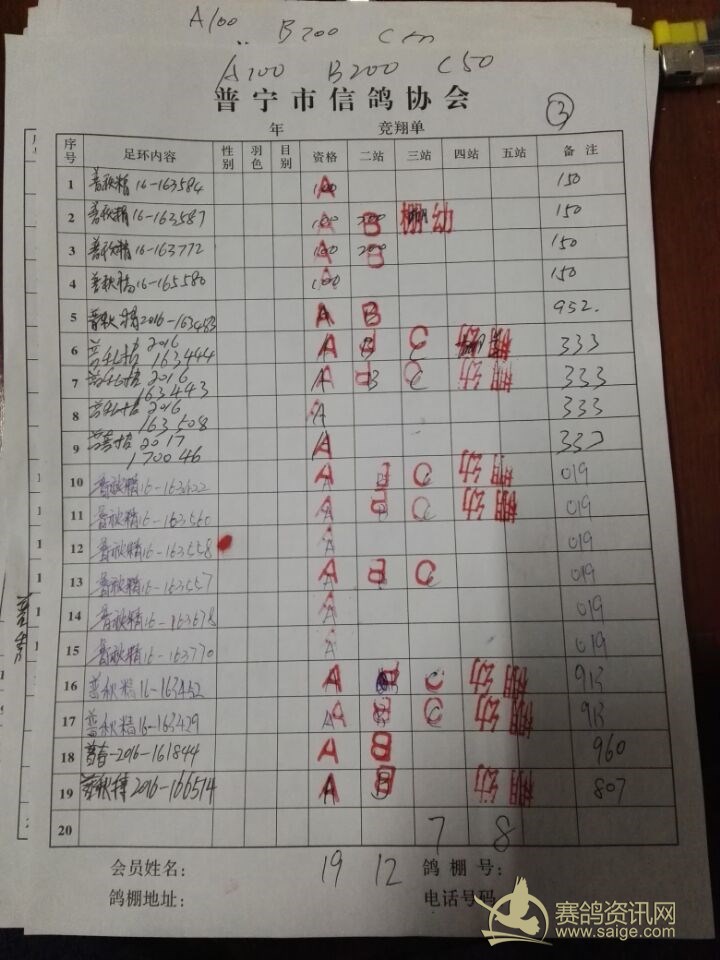 A100 B200 C
A100 B200 C50
普宁市信鸽协会
③
年 竞翔单
序号 足环内容 性别 羽色 目别 资格 二站 三站 四站 五站 备 注
1 普秋精16-163584 A 150
2 普秋精16-163587 A B 棚 幼 150
3 普秋精16-163772 A B 150
4 普秋精16-165580 A 150
5 普秋精2016-163453 A B 952.
6 2016 163444 A B C 幼 棚 333
7 2016 163443 A B C 幼 棚 333
8 2016 163508 A 333
9 2017 170046 A 333
10 普秋精16-163622 A B C 幼 棚 019
11 普秋精16-163560 A B C 幼 棚 019
12 普秋精16-163558 A 019
13 普秋精16-163557 A B C 019
14 普秋精16-163678 A 019
15 普秋精16-163770 A 019
16 普秋精16-163452 A B C 幼 棚 913
17 普秋精16-163429 A B C 幼 棚 913
18 普春-2016-161844 A B 960
19 普秋精2016-166514 A B 幼 棚 807
20 7 8
会员姓名： 19 12 鸽棚号：
鸽棚地址： 电话号码
赛鸽资讯网
www.saige.com